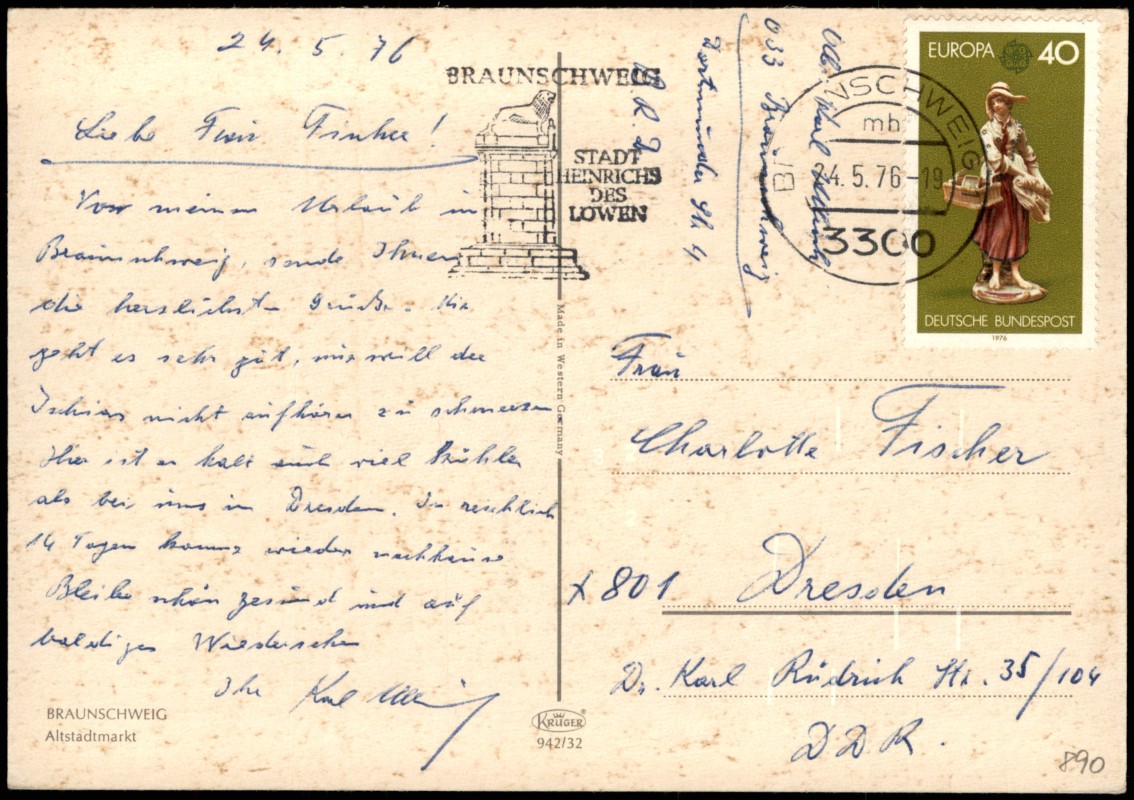 24. 5. 76
Liebe Frau Fischer!
Von meinem Urlaub in
Braunschweig, sende Ihnen
die herzlichsten Grüße. Mir
geht es sehr gut, nur will der
Ischias nicht aufhören zu schmerzen
Hier ist es kalt auch viel kühler
als bei uns in Dresden. In reichlich
14 Tagen komme wieder nachhause
Bleibe schön gesund und auf
baldiges Wiedersehen
Ihr Karl
BRAUNSCHWEIG
Altstadtmarkt
BRAUNSCHWEIG
STADT
HEINRICHS
DES
LÖWEN
Made in Western Germany
KRÜGER
942/32
Karl
033 Braunschweig
Dortmunder Str 4
B.R.D.
BRAUNSCHWEIG 1
mh
24.5.76-19
3300
EUROPA 40
DEUTSCHE BUNDESPOST
1976
Frau
Charlotte Fischer
x 801 Dresden
Dr. Karl Rüdrich Str. 35/104
DDR.
890